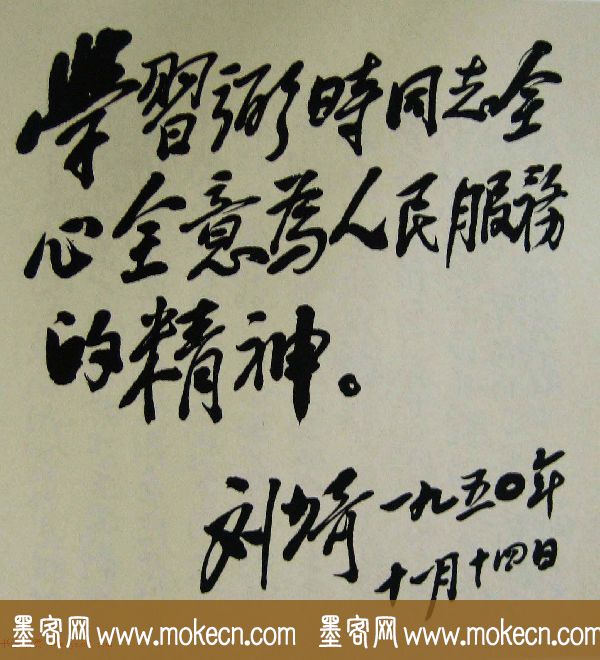 学習弼時同志全
心全意為人民服務
的精神。
刘少奇 一九五〇年
十一月十四日
墨客网 www.mokecn.com 墨客网 www.mokecn.com